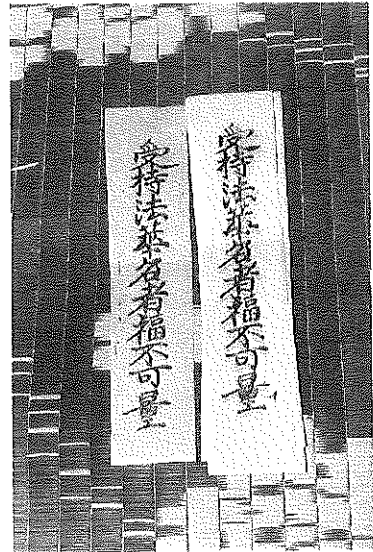 受持法華名者福不可量
受持法華名者福不可量